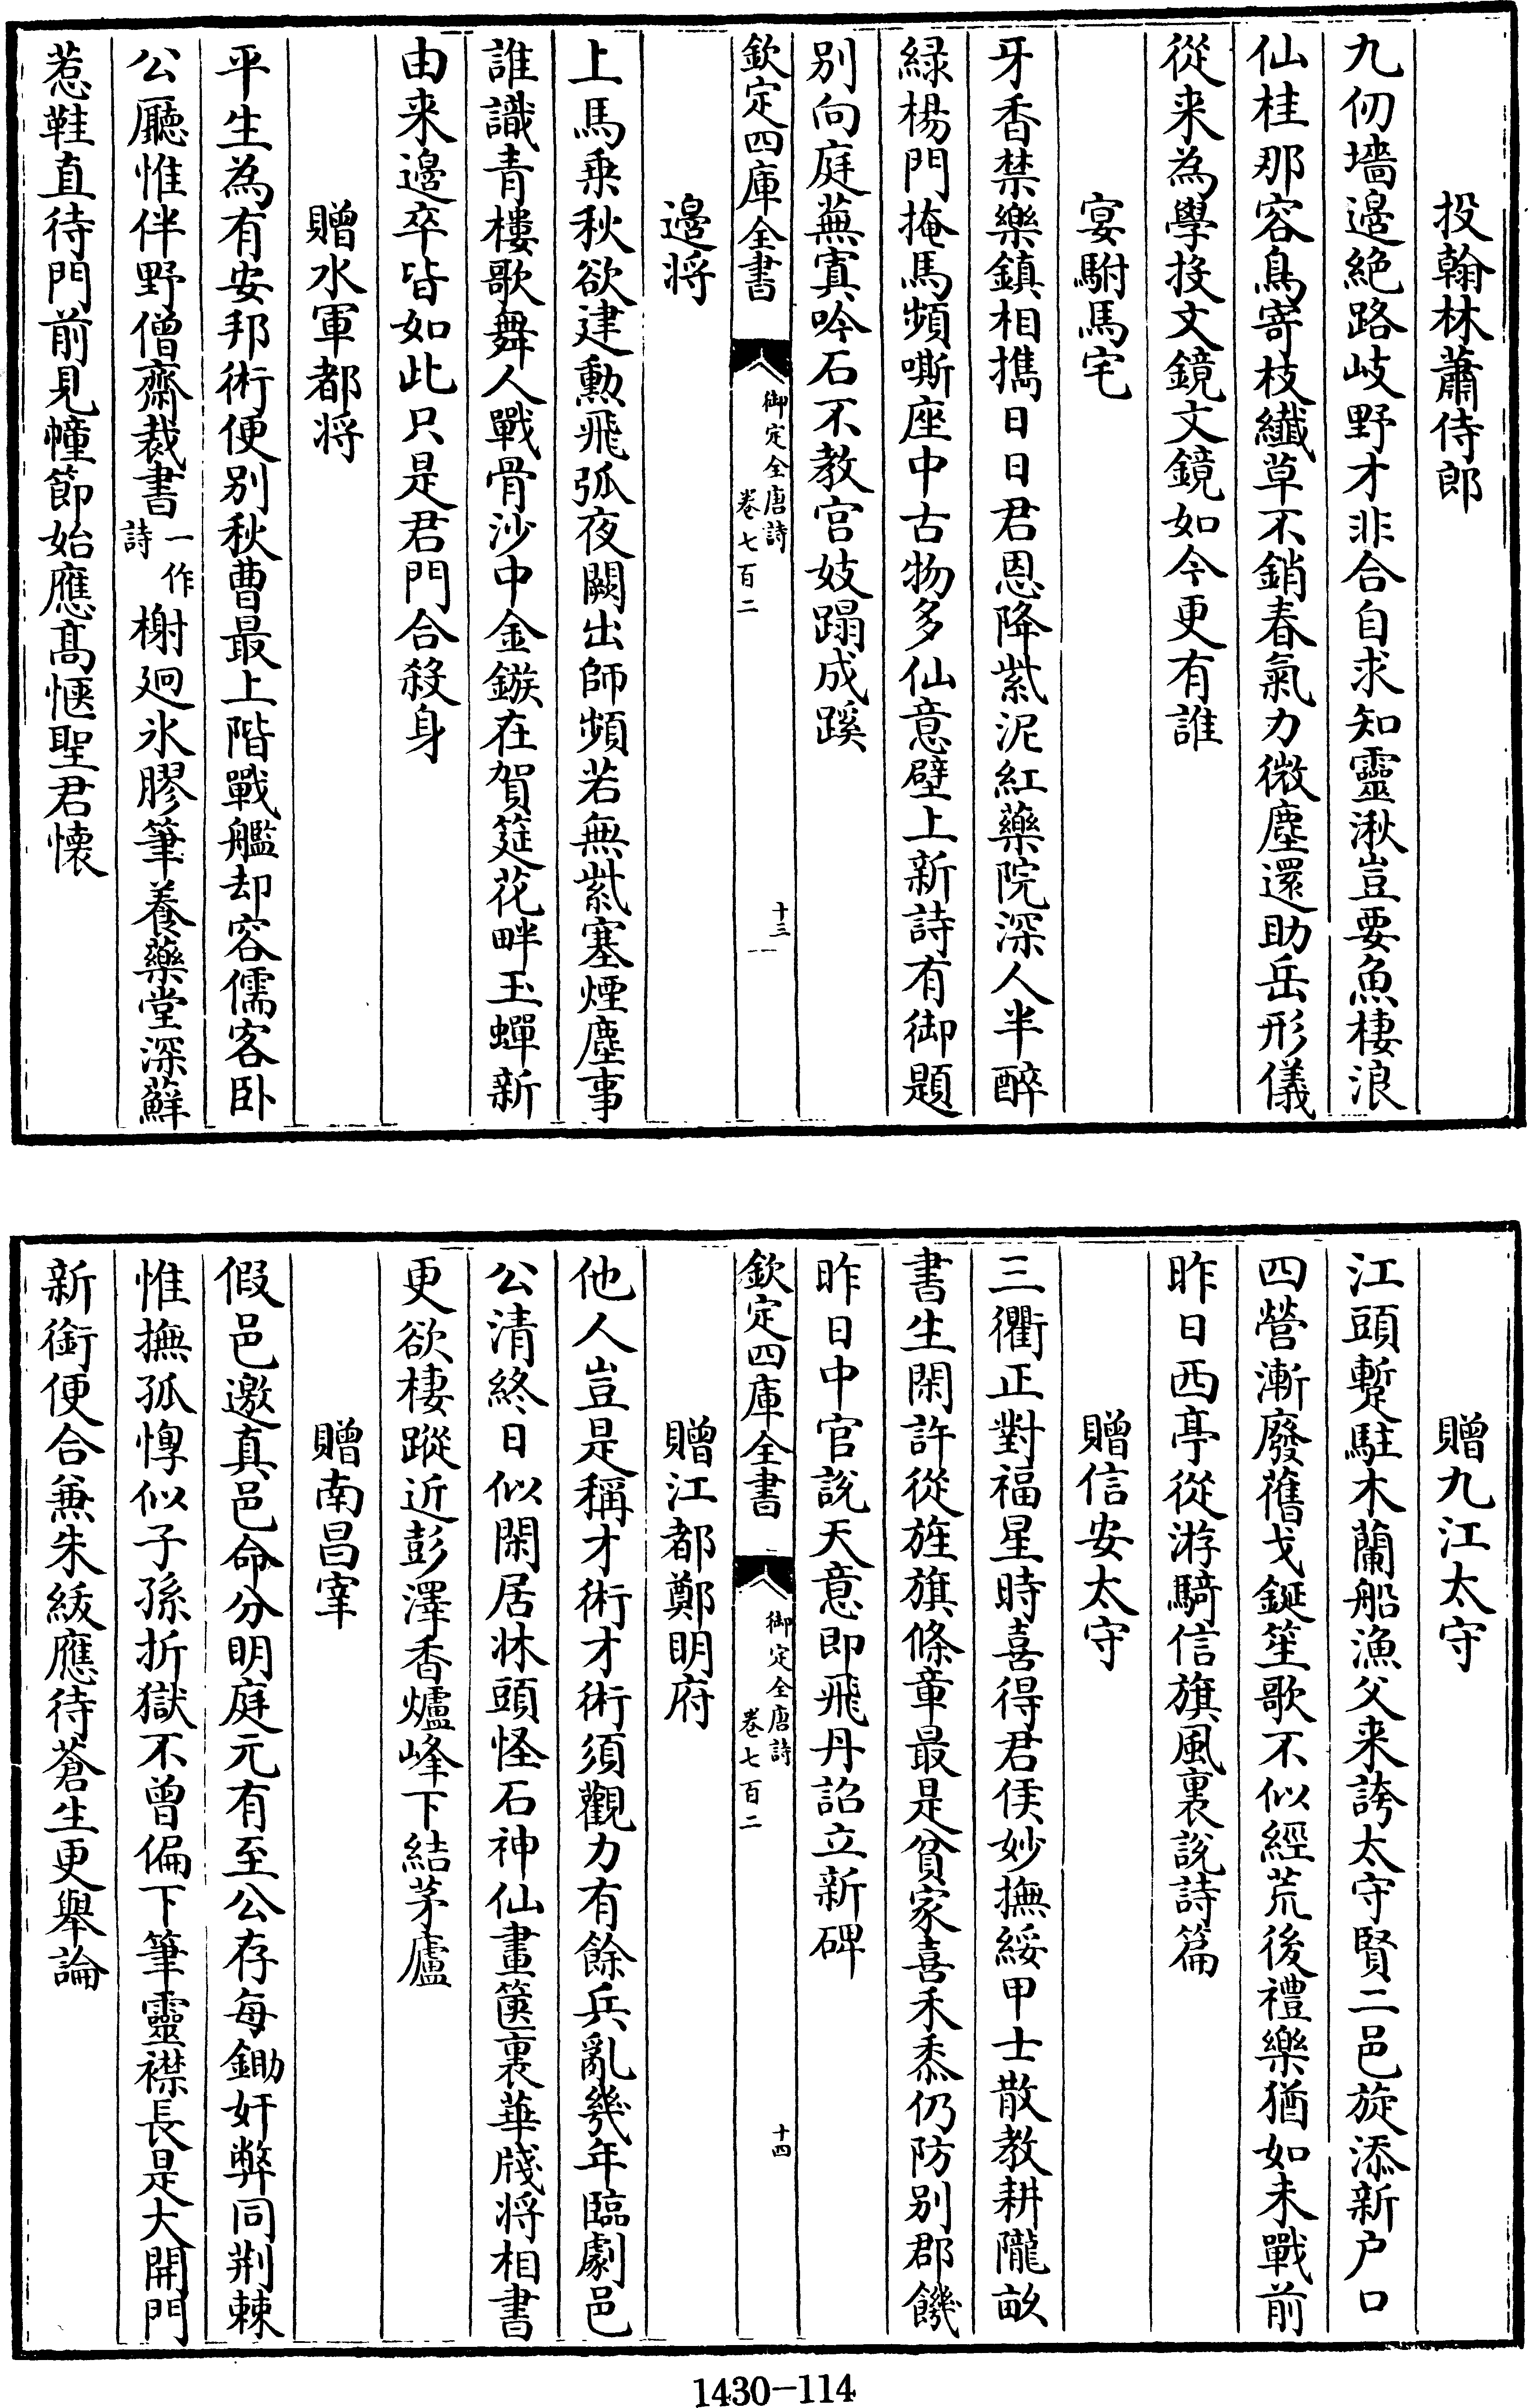 投翰林蕭侍郎
九仞墻邊絶路岐野才非合自求知靈湫豈要魚棲浪
仙桂那容鳥寄枝纎草不銷春氣力微塵還助岳形儀
從来為學投文鏡文鏡如今更有誰
宴駙馬宅
牙香禁樂鎮相攜日日君恩降紫泥紅藥院深人半醉
緑楊門掩馬頻嘶座中古物多仙意壁上新詩有御題
别向庭蕪寘吟石不教宫妓蹋成蹊
欽定四庫全書
御定全唐詩
卷七百二
十三
邊将
上馬乗秋欲建勲飛弧夜闕出師頻若無紫塞煙塵事
誰識青樓歌舞人戰骨沙中金鏃在賀筵花畔玉蟬新
由来邊卒皆如此只是君門合殺身
贈水軍都将
平生為有安邦術便别秋曹最上階戰艦却容儒客卧
公廳惟伴野僧齋裁書一作詩榭迥氷膠筆養藥堂深蘚
惹鞋直待門前見幢節始應髙愜聖君懐
贈九江太守
江頭蹔駐木蘭船漁父来誇太守賢二邑旋添新户口
四營漸廢舊戈鋋笙歌不似經荒後禮樂猶如未戰前
昨日西亭從游騎信旗風裏説詩篇
贈信安太守
三衢正對福星時喜得君侯妙撫綏甲士散教耕隴畝
書生閑許從旌旗條章最是貧家喜禾黍仍防别郡饑
昨日中官説天意即飛丹詔立新碑
欽定四庫全書
御定全唐詩
卷七百二
十四
贈江都鄭明府
他人豈是稱才術才術須觀力有餘兵亂幾年臨劇邑
公清終日似閑居牀頭怪石神仙畫篋裏華牋将相書
更欲棲蹤近彭澤香爐峰下結茅廬
贈南昌宰
假邑邀真邑命分明庭元有至公存每鋤奸弊同荆棘
惟撫孤惸似子孫折獄不曾偏下筆靈襟長是大開門
新銜便合兼朱紱應待蒼生更舉論
1430-114